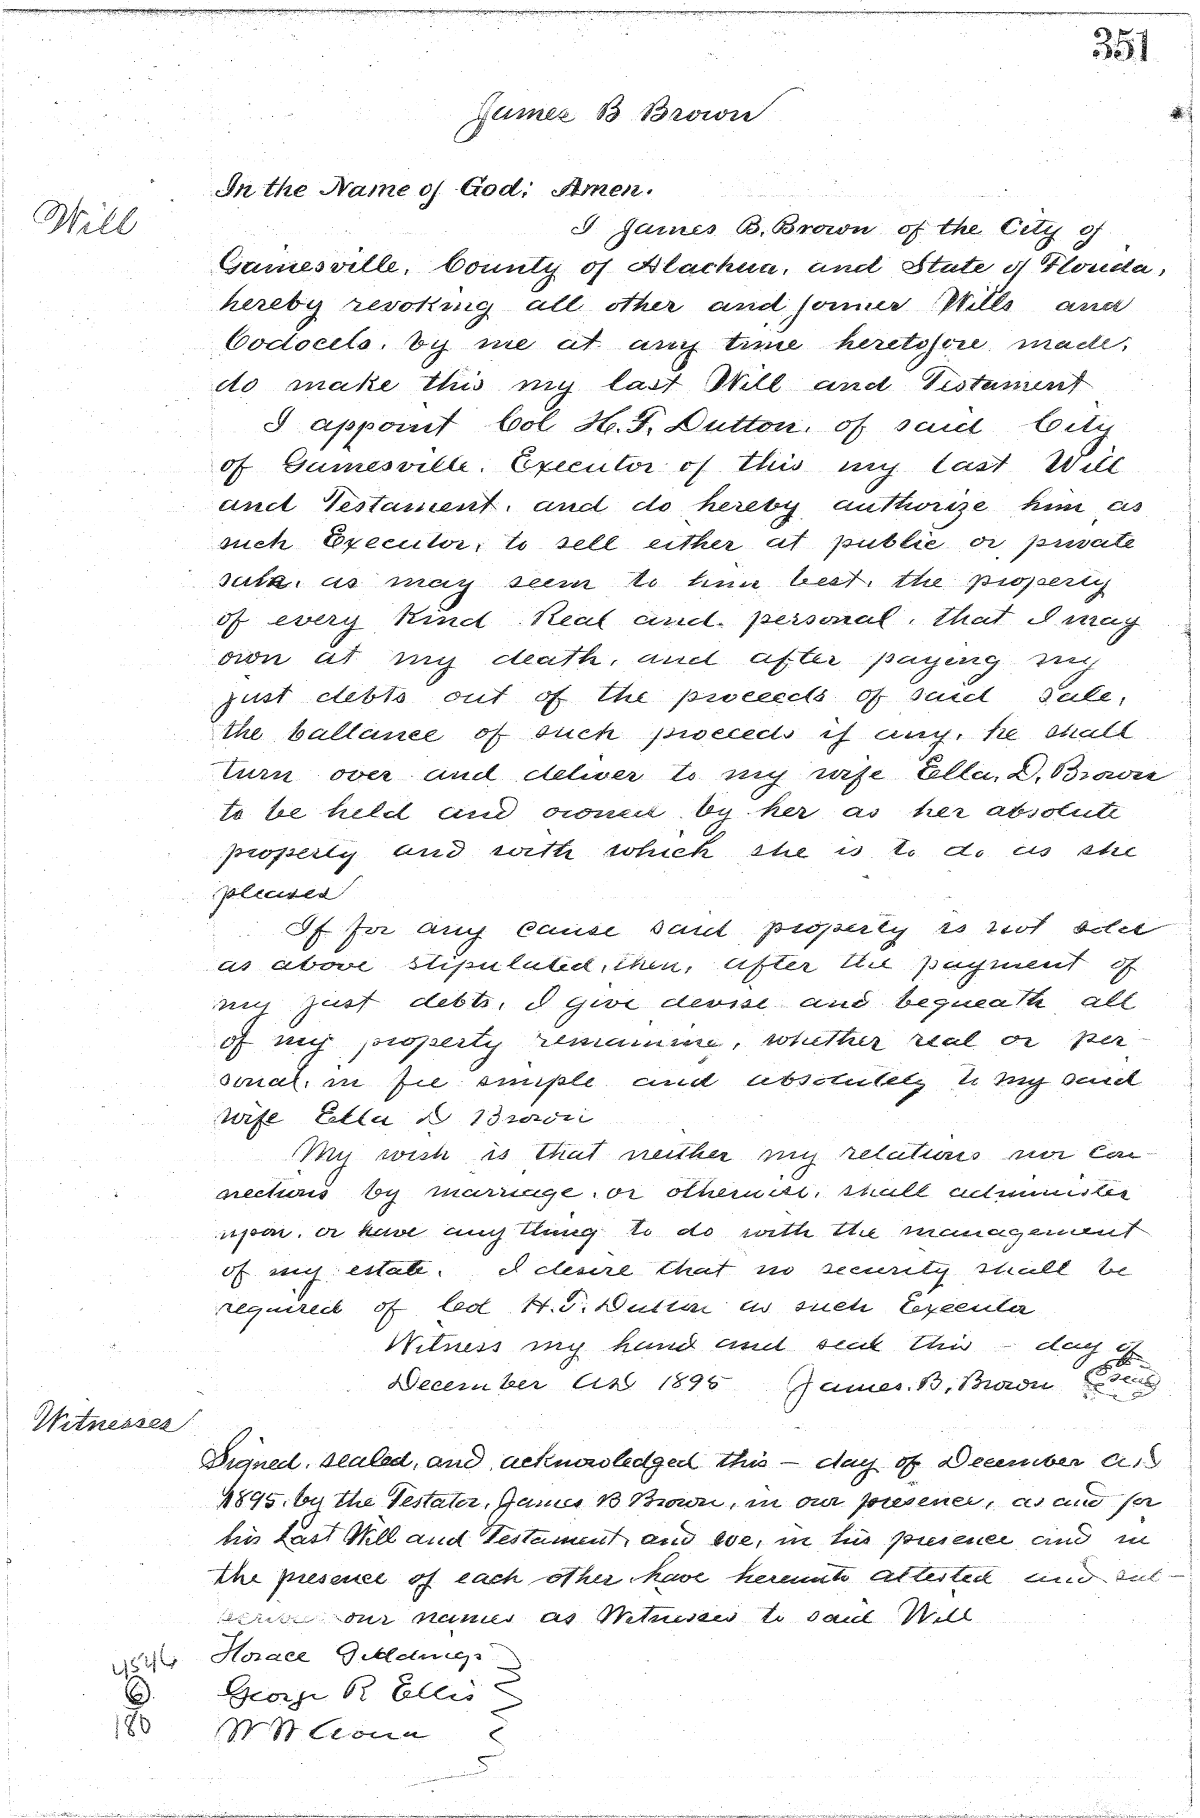 351
James B Brown
In the Name of God; Amen.
Will
I James B. Brown of the City of
Gainesville, County of Alachua, and State of Florida,
hereby revoking all other and former Wills and
Codocels, by me at any time heretofore made,
do make this my last Will and Testament
I appoint Col H. F. Dutton, of said City
of Gainesville. Executor of this my last Will
and Testament, and do hereby authorize him as
such Executor, to sell either at public or private
sale, as may seem to him best, the property
of every kind Real and personal, that I may
own at my death, and after paying my
just debts out of the proceeds of said sale,
the ballance of such proceeds if any, he shall
turn over and deliver to my wife Ella. D. Brown
to be held and owned by her as her absolute
property and with which she is to do as she
pleases
If for any cause said property is not sold
as above stipulated, then, after the payment of
my just debts, I give devise and bequeath all
of my property remaining, whether real or per-
sonal, in fee simple and absolutely to my said
wife Ella D Brown
My wish is that neither my relations nor con-
nections by marriage, or otherwise, shall administer
upon, or have any thing to do with the management
of my estate. I desire that no security shall be
required of Col H. F. Dutton as such Executor
Witness my hand and seal this - day of
December AD 1895 James. B. Brown Seal
Witnesses
Signed, sealed, and acknowledged this - day of December A.D
1895, by the Testator, James B Brown, in our presence, as and for
his Last Will and Testament, and we, in his presence and in
the presence of each other have hereunto attested and sub-
scribed our names as Witnesses to said Will
Horace Giddings
George R Ellis
6
W W
180